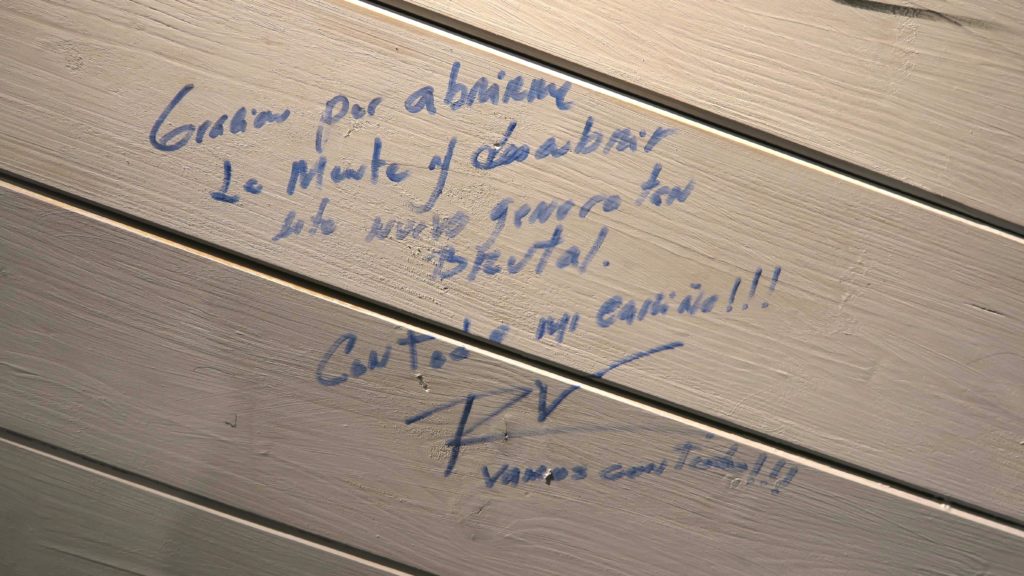 Gracias por abrirme
La Mente y descubrir
este nuevo genero tan
Brutal.
Con todo mi cariño!!!
RV
vamos con Todo!!!